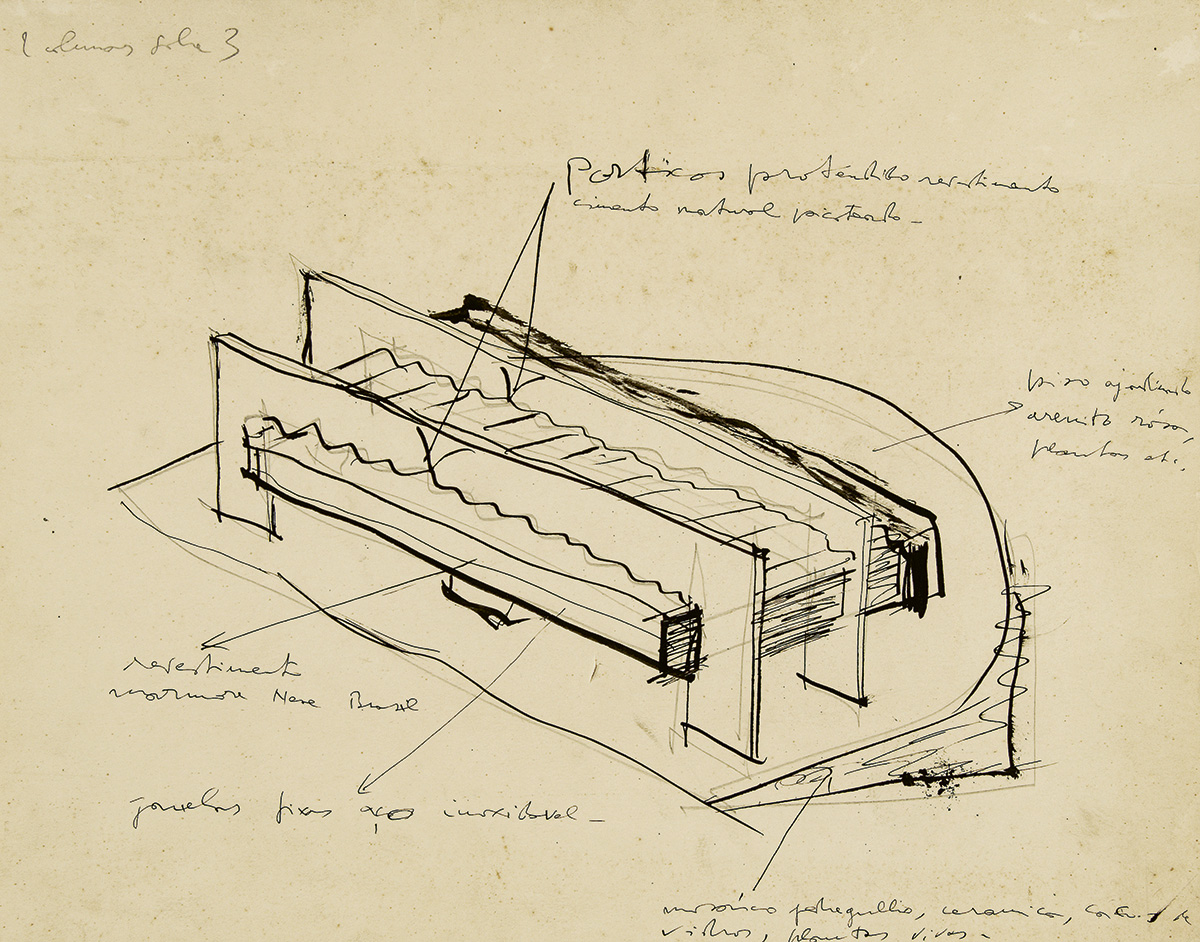 colunas sobre 3
Porticos protendido revestimento
cimento natural picoteado -
piso ajardinado
arenito rósa,
plantas etc.
revestimento
marmore Neve Brasil
janelas fixas aço inoxidavel -
mosaico pedregulho, ceramica, de
vidros, plantas vivas -